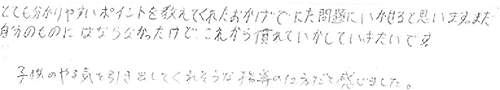 とても分かりやすいポイントを教えてくれたおかげでにた問題にいかせると思います。まだ
自分のものにはならなかったけど、これから慣えていかしていきたいです
子供のやる気を引き出してくれそうな指導の仕方だと感じました。